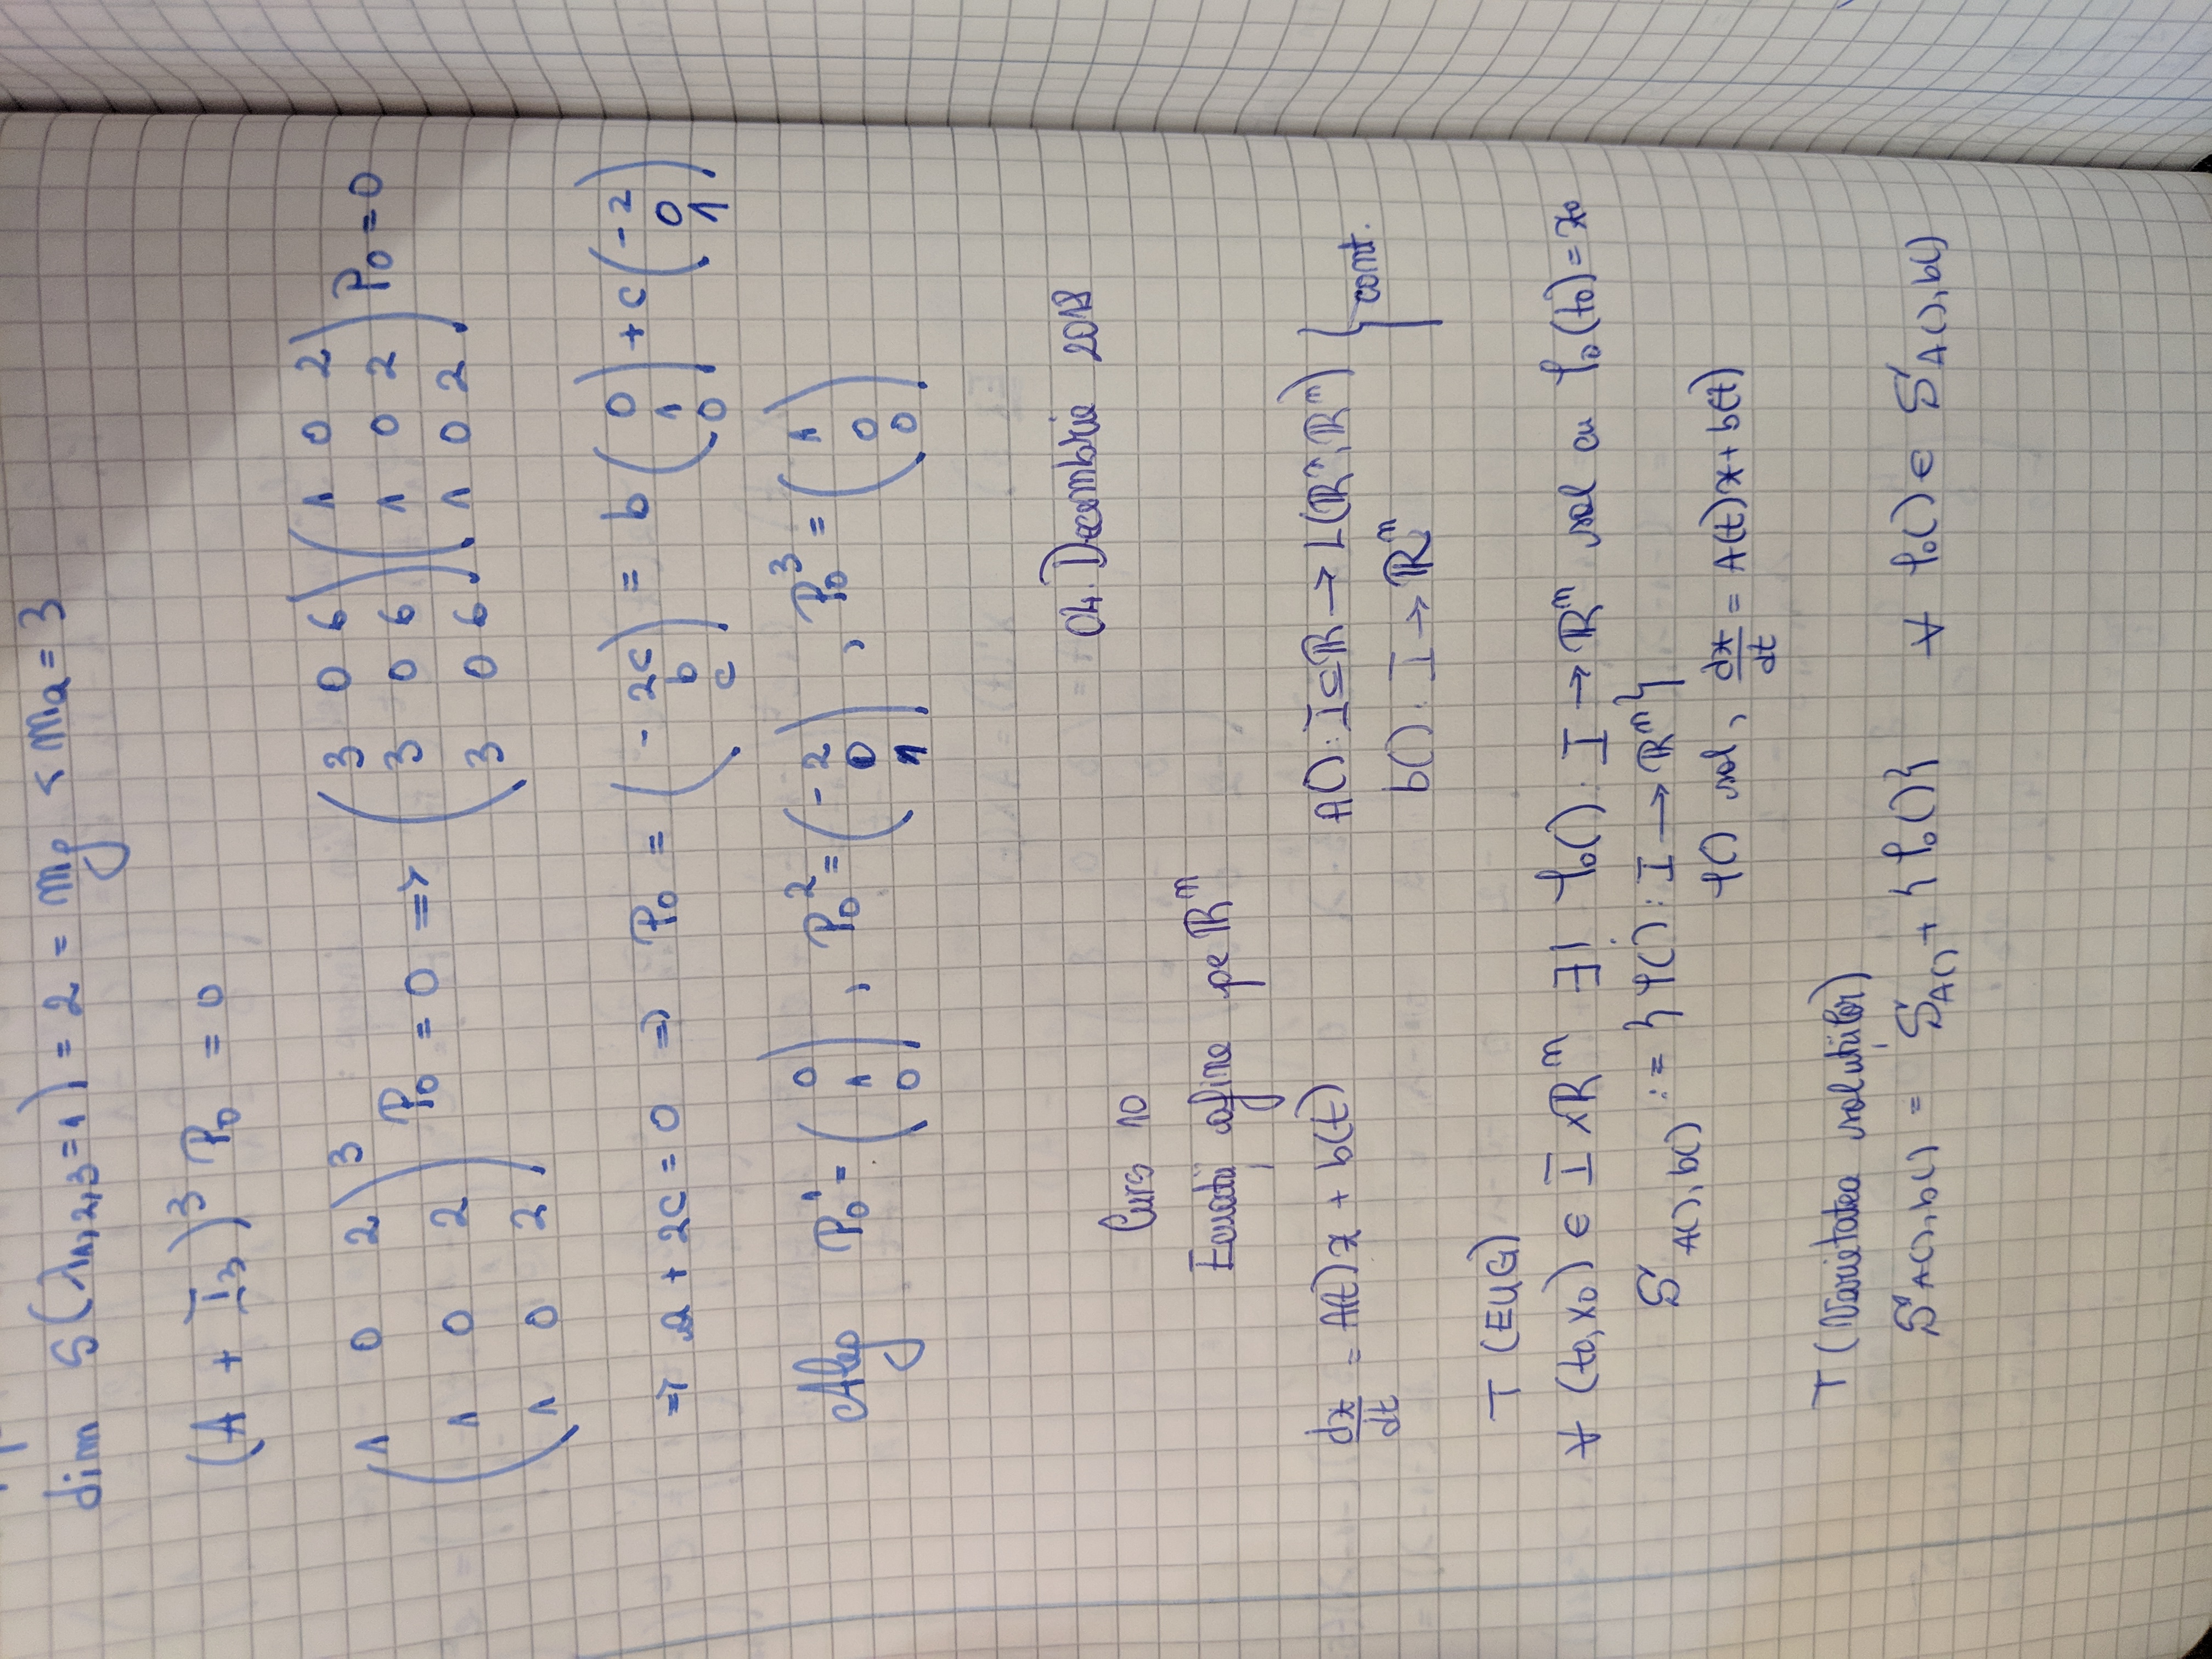 dim S(λ1,2,3=1) = 2 = mg < ma = 3
(A + I3)^3 P0 = 0
(1 0 2; 1 0 2; 1 0 2)^3 P0 = 0 => (3 0 6; 3 0 6; 3 0 6)(1 0 2; 1 0 2; 1 0 2) P0 = 0
=> a + 2c = 0 => P0 = (-2c; b; c) = b(0; 1; 0) + c(-2; 0; 1)
Aleg P0^1 = (0; 1; 0), P0^2 = (-2; 0; 1), P0^3 = (1; 0; 0)
04. Decembrie 2018
Curs 10
Ecuații afine pe ℝ^n
dx/dt = A(t)x + b(t) A(): I⊆ℝ → L(ℝ^n, ℝ^n) } cont.
b(): I → ℝ^n
T (EUG)
∀ (t0, x0) ∈ I×ℝ^n ∃! φ0(): I → ℝ^n sol cu φ0(t0) = x0
S A(), b() := {φ(): I → ℝ^n}
φ() sol, dx/dt = A(t)x + b(t)
T (Varietatea soluțiilor)
S A(), b() = S A() + {φ0()} ∀ φ0() ∈ S A(), b()